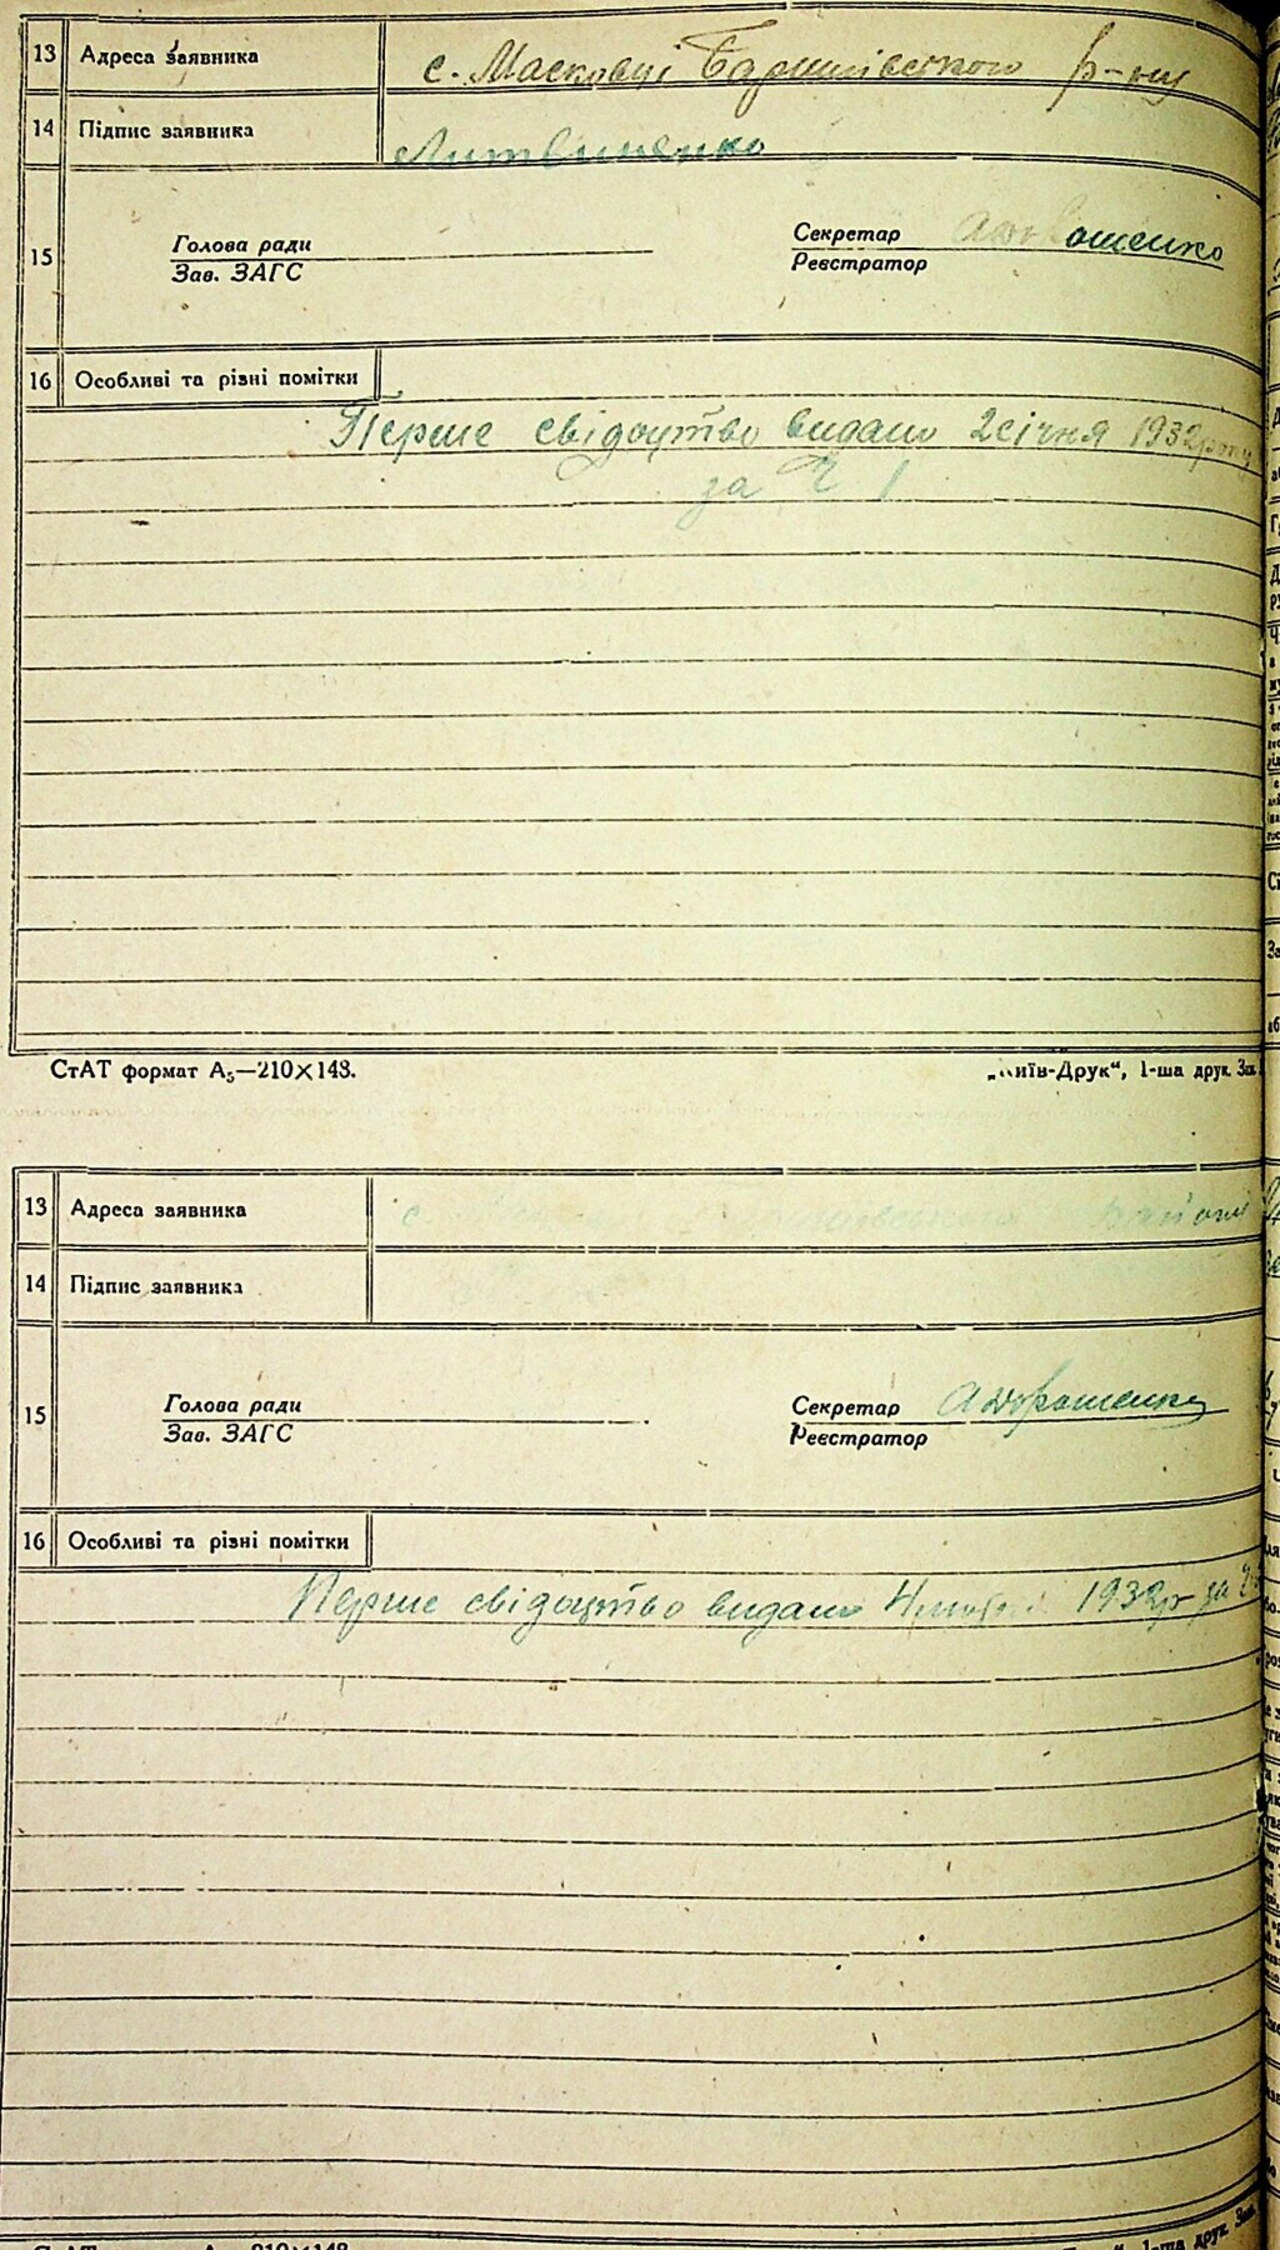 13 Адреса заявника с. Масковці Баришівського р-ну
14 Підпис заявника Литвиненко
15 Голова ради
Зав. ЗАГС
Секретар
Реєстратор
А Дорошенко
16 Особливі та різні помітки
Перше свідоцтво видано 2 січня 1932 року
за Ч 1
СтАТ формат А5—210×148.
„Київ-Друк“, 1-ша друк. Зам.
13 Адреса заявника с.
14 Підпис заявника
15 Голова ради
Зав. ЗАГС
Секретар
Реєстратор
А Дорошенко
16 Особливі та різні помітки
Перше свідоцтво видано 1932р за Ч
210×148
1-ша друк. Зам.